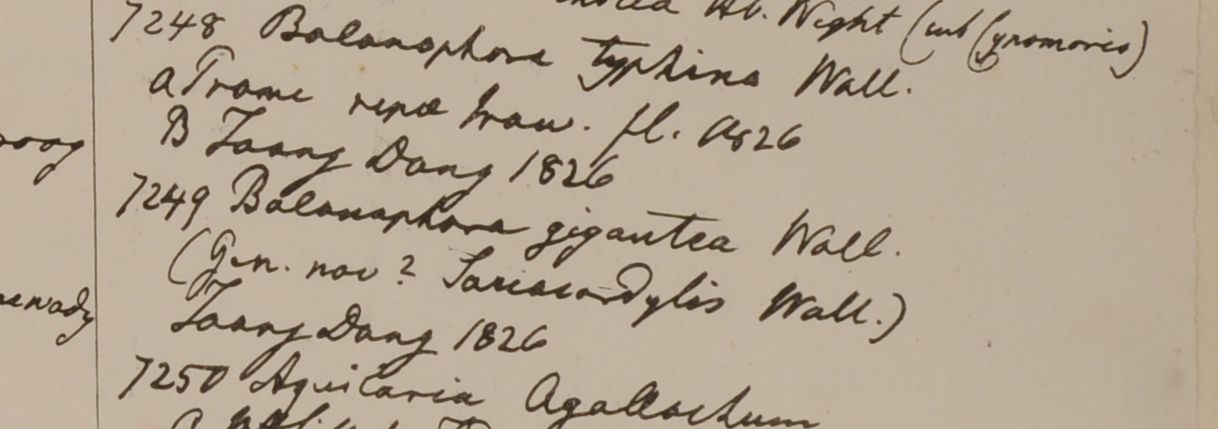 Hb. Wight (sub Cynomorio)
7248 Balanophora typhina Wall.
a Prome ripæ Iraw. fl. 1826
B Taong Dong 1826
7249 Balanophora gigantea Wall.
(Gen. nov? Sarcocordylis Wall.)
Taong Dong 1826
7250 Aquilaria Agallochum